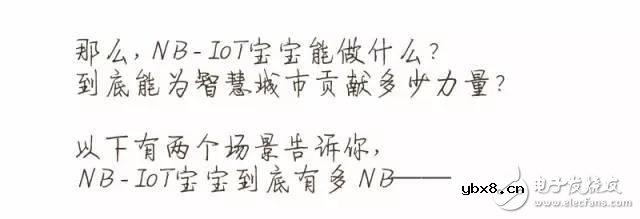 那么,NB-IoT宝宝能做什么?
到底能为智慧城市贡献多少力量?
以下有两个场景告诉你,
NB-IoT宝宝到底有多NB——
ybx8.cn
电子发烧友
www.elecfans.com